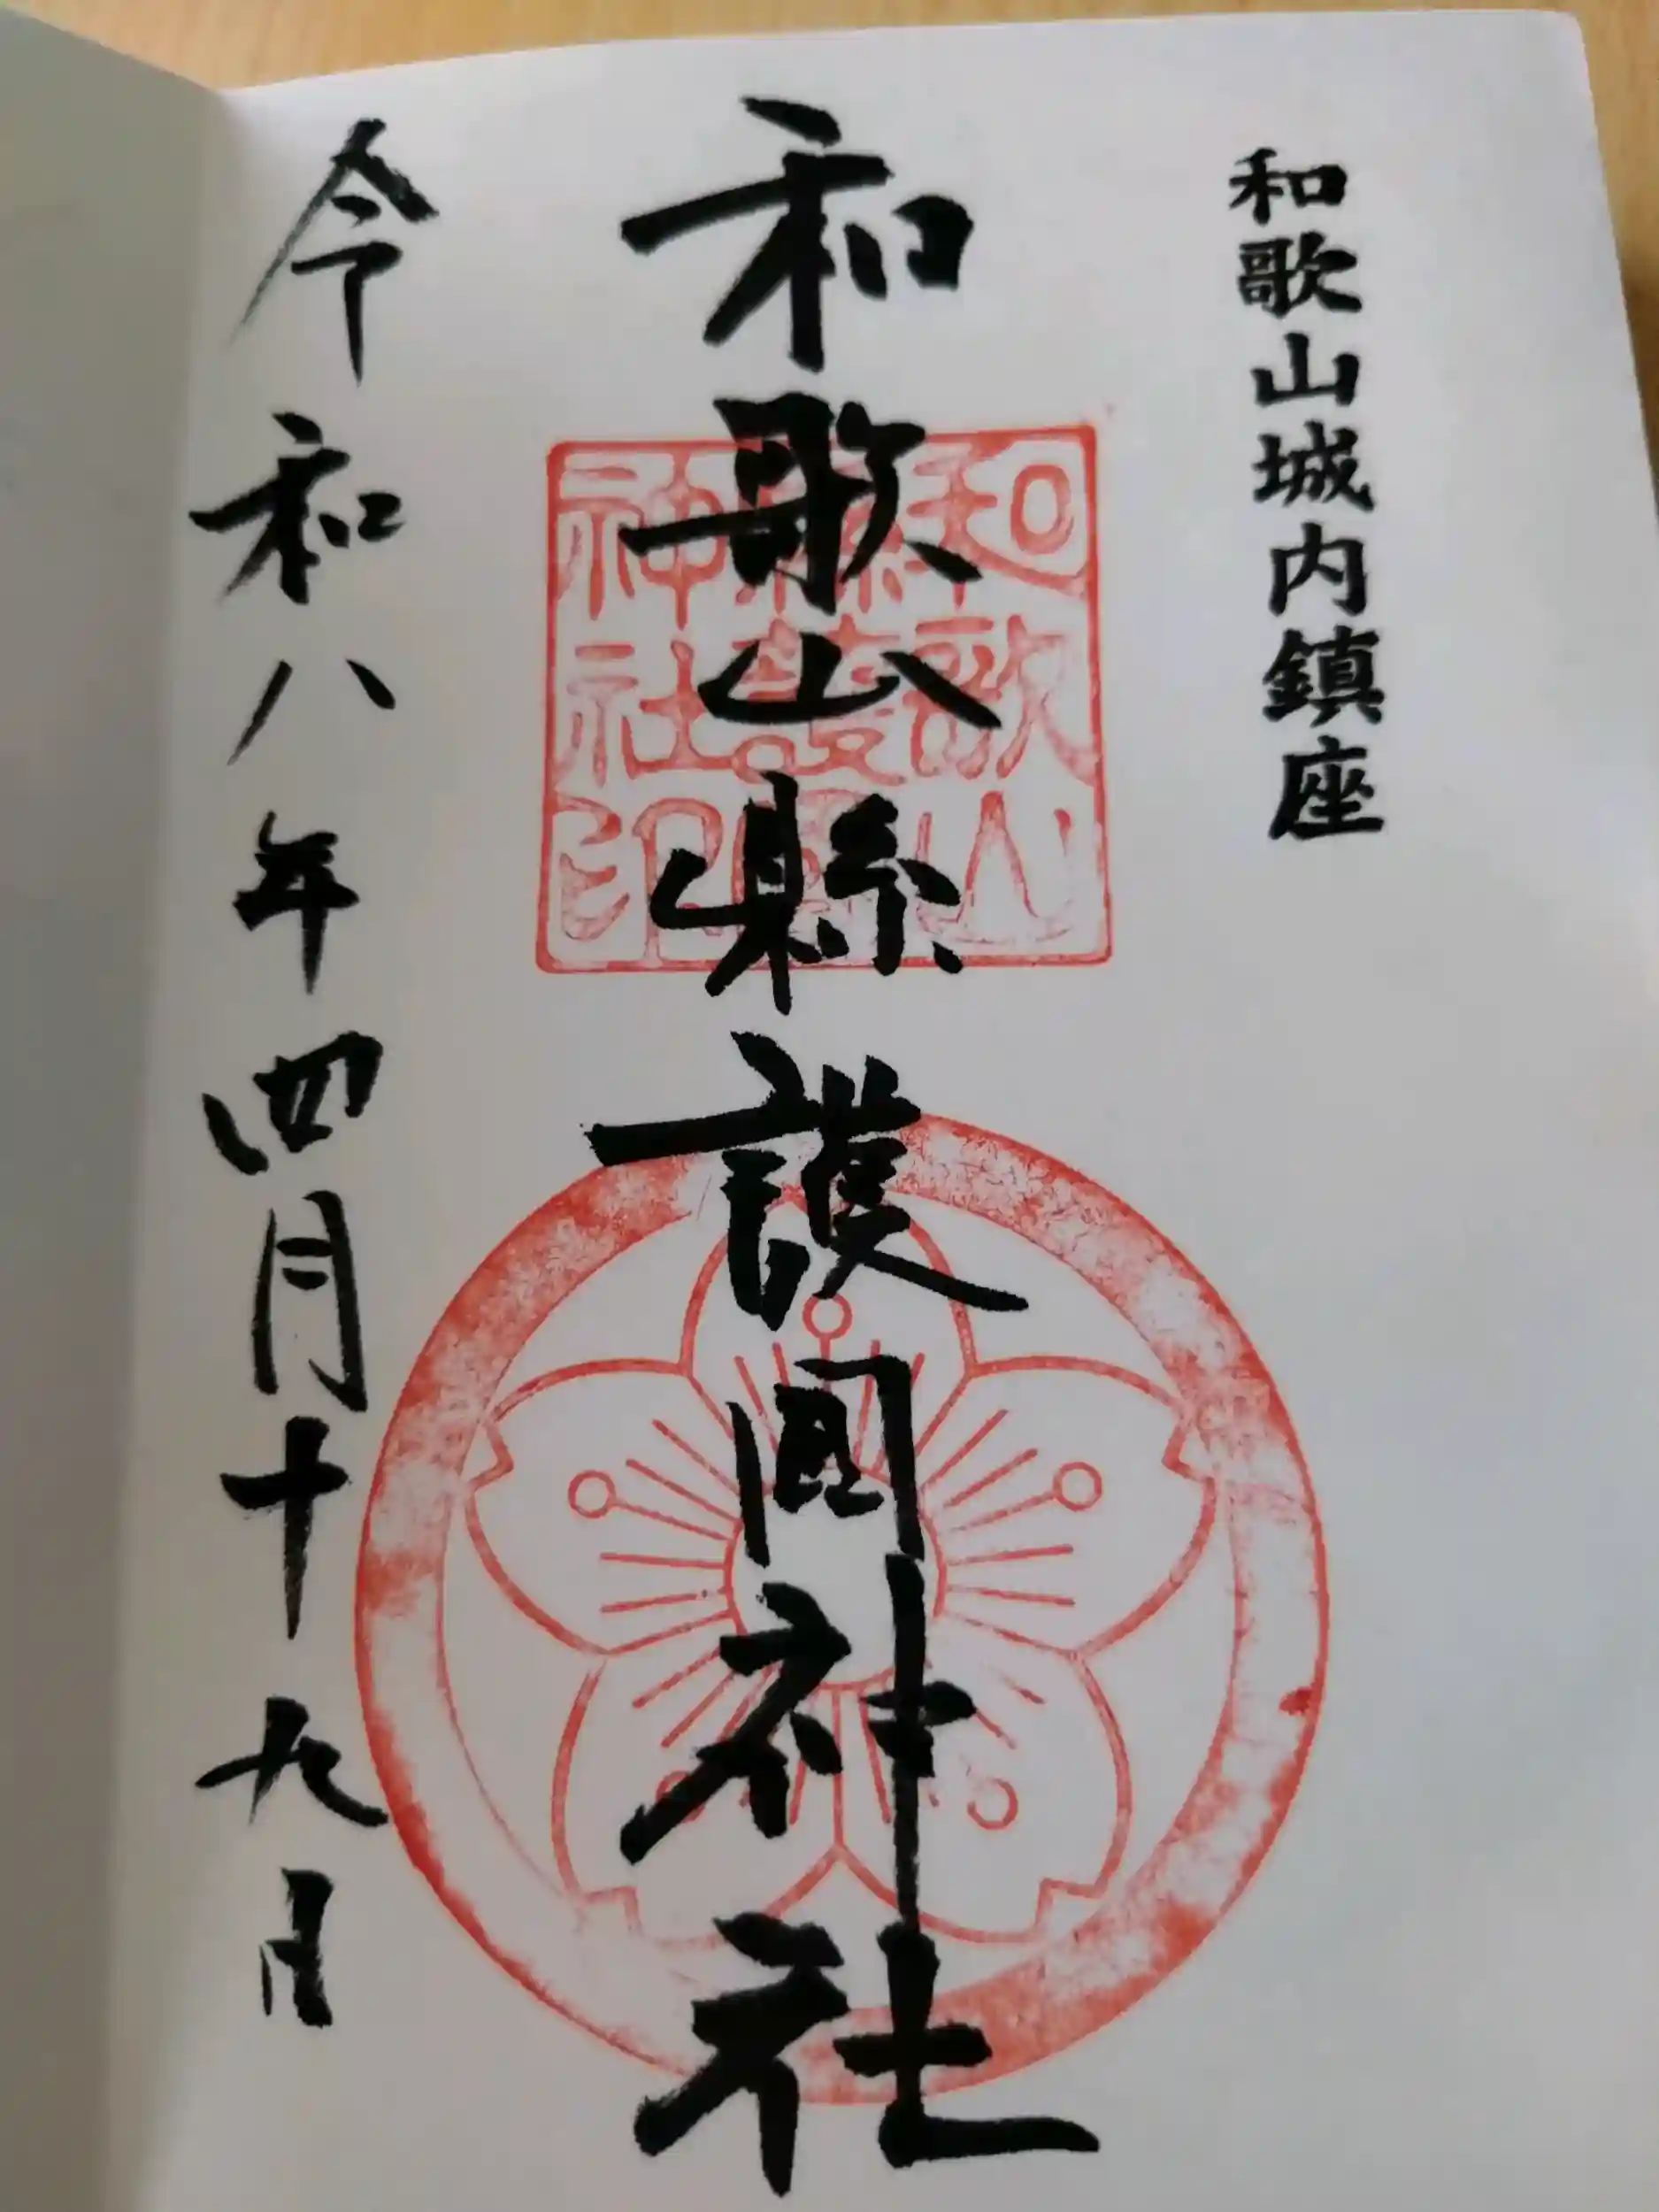 和歌山城内鎮座
和歌山縣護國神社
令和八年四月十九日
和歌山
縣護國
神社印